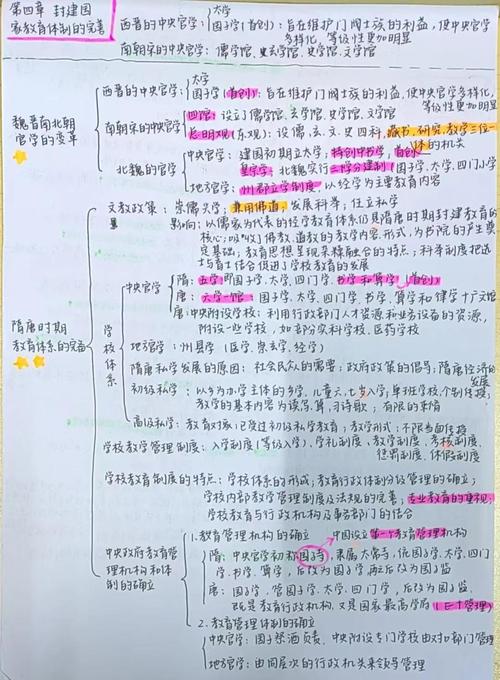 第四章 封建国
家教育体制的完善
西晋的中央官学:
大学
国子学(首创):旨在维护门阀士族的利益,使中央官学
多样化,等级性更加明显
南朝宋的中央官学:儒学馆、玄学馆、史学馆、文学馆
魏晋南北朝
官学的变革
西晋的中央官学:
大学
国子学(首创):旨在维护门阀士族的利益,使中央官学多样化,
等级性更加明显
南朝宋的中央官学:
四馆:设立了儒学馆、玄学馆、史学馆、文学馆
总明观(东观):设儒、玄、文、史四科,藏书、研究、教学三位一
体的机关
北魏的官学:
中央官学:建国初期立太学;特创中书学,首创
皇宗学;北魏实行三学分建制(国子学、太学、四门小学
地方官学:州郡立学制度,以经学为主要教育内容
隋唐时期
教育体系的完备
文教政策:崇儒兴学;兼用佛道;发展科举;任立私学
影响:以儒家为代表的经学教育体系仍是隋唐时期封建教育的
核心;吸收了佛教、道教的教学内容、形式,为书院的产生奠
定基础;教育思想呈现柔糅融合的特点;科举制度把选
士与育士结合促进了学校教育的发展
学校体系
中央官学
隋:五学即国子学、太学、四门学、书学和算学(首创)
唐:六学一馆:国子学、太学、四门学、书学、算学和律学+广文馆
唐:中央附设学校:利用行政部门人才资源和业务设备的资源,
附设一些学校,如部分实科学校、医药学校
地方官学:州县学(医学、崇玄学、经学)
隋唐私学发展的原因:社会民众人的需要;政府政策的倡导;隋唐经济的
发展
初级私学:以乡为办学主体的乡学,儿童六、七岁入学;单班学校,个别传授;
教学的基本内容为读写、算、习诗歌;有限的事情
高级私学:教育对象:已度过初级私学教育;教学形式:不限当面传授
学校教学管理制度:入学制度(等级入学)、学礼制度、教学制度、考核制度、
惩罚制度、休假制度
学校教育制度的特点:学校体系的形成;教育行政体制分级管理的确立;
学校内部教学管理制度及法规的完善;专业教育的重视;
学校教育与行政机构及事务部门的结合
中央政府教育管
理机构和体
制的确立
1.教育管理机构的确立 中国设立第一个教育管理机构
隋:中央官学初称国子寺,隶属太常寺,统国子学、太学、四门
学、书学、算学,后改为国子学,再后改为国子监
唐:国子学,管国子学、太学、四门学,后改为国子监、
既是教育行政机构,又是国家最高学府
2.教育管理体制的确立
中央官学:国子祭酒负责、中央附设专门学校由对口部门管理
地方官学:由同层次的行政机关来领导管理